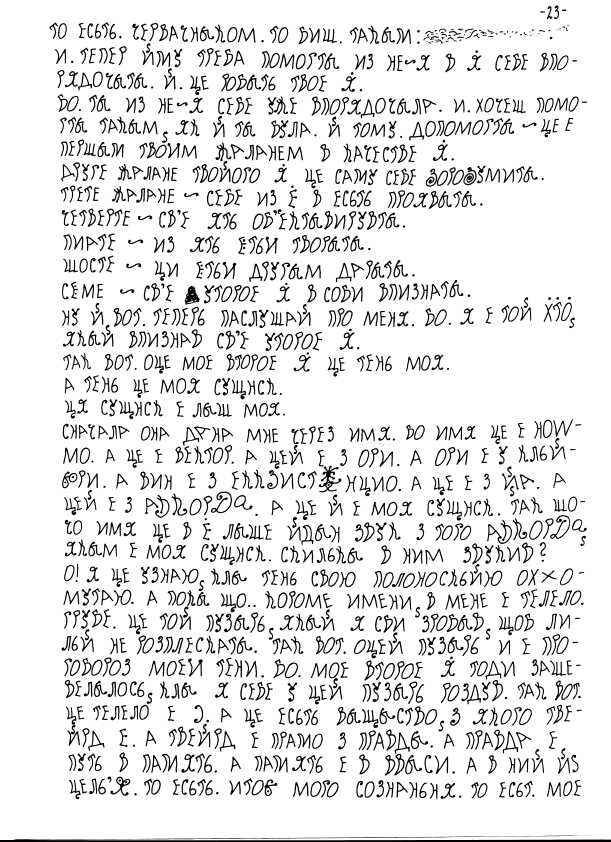 -23-
ТО ЕСЬТЬ. ЧЕРВАЧНЫКОМ. ТО ВИШ. ТАКЫМ:
И. ТЕПЕР ЙМУ ТРЕБА ПОМОГТЫ ИЗ НЕ~Я В Я СЕБЕ ВПО-
РЯДОЧЫТЫ. Й. ЦЕ РОБЫТЬ ТВОЕ Я.
БО. ТЫ ИЗ НЕ~Я СЕБЕ УЖЕ ВПОРЯДОЧЫЛА. И. ХОЧЕШ ПОМО-
ГТЫ ТАКЫМ, ЯК Й ТЫ БУЛА. Й ТОМУ. ДОПОМОГТЫ ~ ЦЕ Е
ПЕРШЫМ ТВОИМ ЖАЛАНЕМ В КАЧЕСТВЕ Я.
ДРУГЕ ЖАЛАНЕ ТВОЙОГО Я ЦЕ САМУ СЕБЕ ЗОРОЗУМИТЫ.
ТРЕТЕ ЖАЛАНЕ ~ СЕБЕ ИЗ Е В ЕСЬТЬ ПРОЯВЫТЫ.
ЧЕТВЕРТЕ ~ СВ'Е ЯТЬ ОБ'ЕКТЫВИРУВТЫ.
ПИАТЕ ~ ИЗ ЯТЬ ЕТЬИ ТВОРЫТЫ.
ШОСТЕ ~ ЦИ ЕТЬИ ДРУГЫМ ДАРЫТЫ.
СЕМЕ ~ СВ'Е УТОРОЕ Я В СОБИ ВПИЗНАТЫ.
НУ Й, ВОТ. ТЕПЕРЬ ПАСЛУШАЙ ПРО МЕНЯ. БО. Я Е ТОЙ ХТО,
ЯКЫЙ ВПИЗНАВ СВ'Е УТОРОЕ Я.
ТАК ВОТ. ОЦЕ МОЕ ВТОРОЕ Я ЦЕ ТЕНЬ МОЯ.
А ТЕНЬ ЦЕ МОЯ СУЩНСК.
ЦЯ СУЩНСК Е ЛЫШ МОЯ.
СНАЧАЛА ОНА ДАНА МНЕ ЧЕРЕЗ ИМЯ. БО ИМЯ ЦЕ Е НОW-
МО. А ЦЕ Е ВЕКТОР. А ЦЕЙ Е З ОРИ. А ОРИ Е У КЛЬЙ-
А ВИН Е З НЦИО. А ЦЕ Е З ЙА. А
ЦЕЙ Е З АДКОРДА. А ЦЕ Й Е МОЯ СУЩНСК. ТАК ШО-
ЧО ИМЯ ЦЕ В Е ЛЫШЕ ЙДЫН ЗВУК З ТОГО АДКОРДА,
ЯКЫМ Е МОЯ СУЩНСК. СКИЛЬКЫ В НИМ ЗВУКИВ?
О! Я ЦЕ УЗНАЮ, КЛЫ ТЕНЬ СВОЮ ПОЛОНОСКЬЙЮ ОХ×О-
МУТАЮ. А ПОКЫ ЩО.. КОРОМЕ ИМЕНИ, В МЕНЕ Е ТЕЛЕЛО.
ГРУБЕ. ЦЕ ТОЙ ПУЗЫРЬ, ЯКЫЙ Я СВИ ЗРОБЫВ, ЩОБ ЛИ-
ЛЬЙ НЕ РОЗПЛЕСКАТЫ. ТАК ВОТ. ОЦЕЙ ПУЗЫРЬ И Е ПРО-
ТОВОРОЗ МОЕЙ ТЕНИ. БО. МОЕ ВТОРОЕ Я ТОДИ ЗАШЕ-
ВЕЛЫЛОСЬ, КЛЫ Я СЕБЕ У ЦЕЙ ПУЗЫРЬ РОЗДУВ. ТАК ВОТ.
ЦЕ ТЕЛЕЛО Е Э. А ЦЕ ЕСЬТЬ ВЫЩЫСТВО, З ЯКОГО ТВЕ-
ЙРД Е. А ТВЕЙРД Е ПРАМО З ПРАВДЫ. А ПРАВДА Е,
ПУТЬ В ПАМЯТЬ. А ПАМЯТЬ Е В ВВЫСИ. А В НИЙ ЙS
ТО ЕСЬТЬ. МОГО СОЗНАНЬНЯ. ТО ЕСЬТ. МОЕ